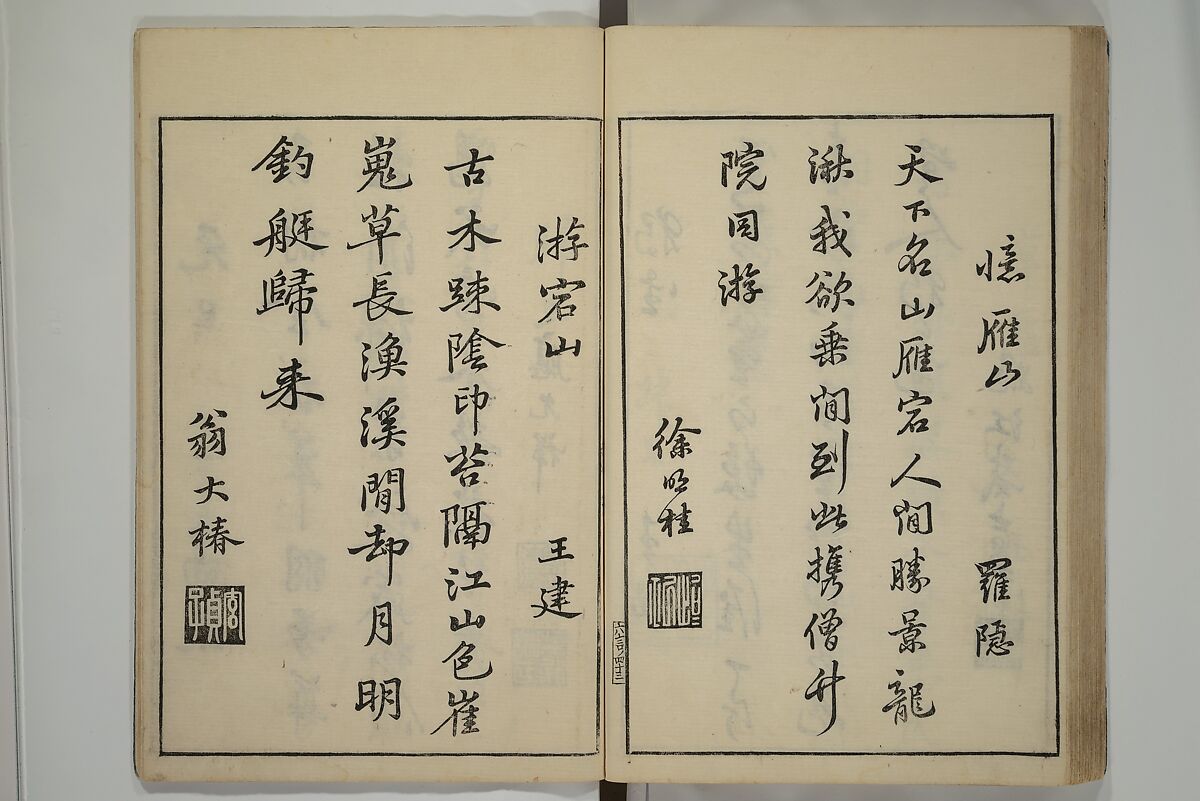 憶雁山 羅隱
天下名山雁宕人間勝景龍
湫我欲乗间到此携僧竹
院同游
徐明桂
六言 四十三
游宕山 王建
古木踈陰印苔隔江山色崔
嵬草長漁溪閒却月明
釣艇歸来
翁大椿